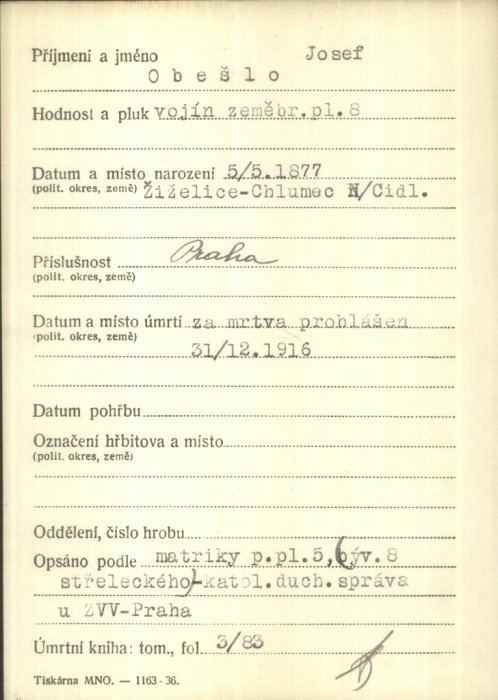 Příjmení a jméno Josef
Obešlo
Hodnost a pluk vojín zeměbr.pl.8
Datum a místo narození 5/5.1877
(polit. okres, země) Žiželice-Chlumec N/Cidl.
Příslušnost Praha
(polit. okres, země)
Datum a místo úmrtí za mrtva prohlášen
(polit. okres, země) 31/12.1916
Datum pohřbu
Označení hřbitova a místo
(polit. okres, země)
Oddělení, číslo hrobu
Opsáno podle matriky p.pl.5,(býv.8
střeleckého)-katol.duch.správa
u ZVV-Praha
Úmrtní kniha: tom., fol. 3/83
Tiskárna MNO. — 1163-36.